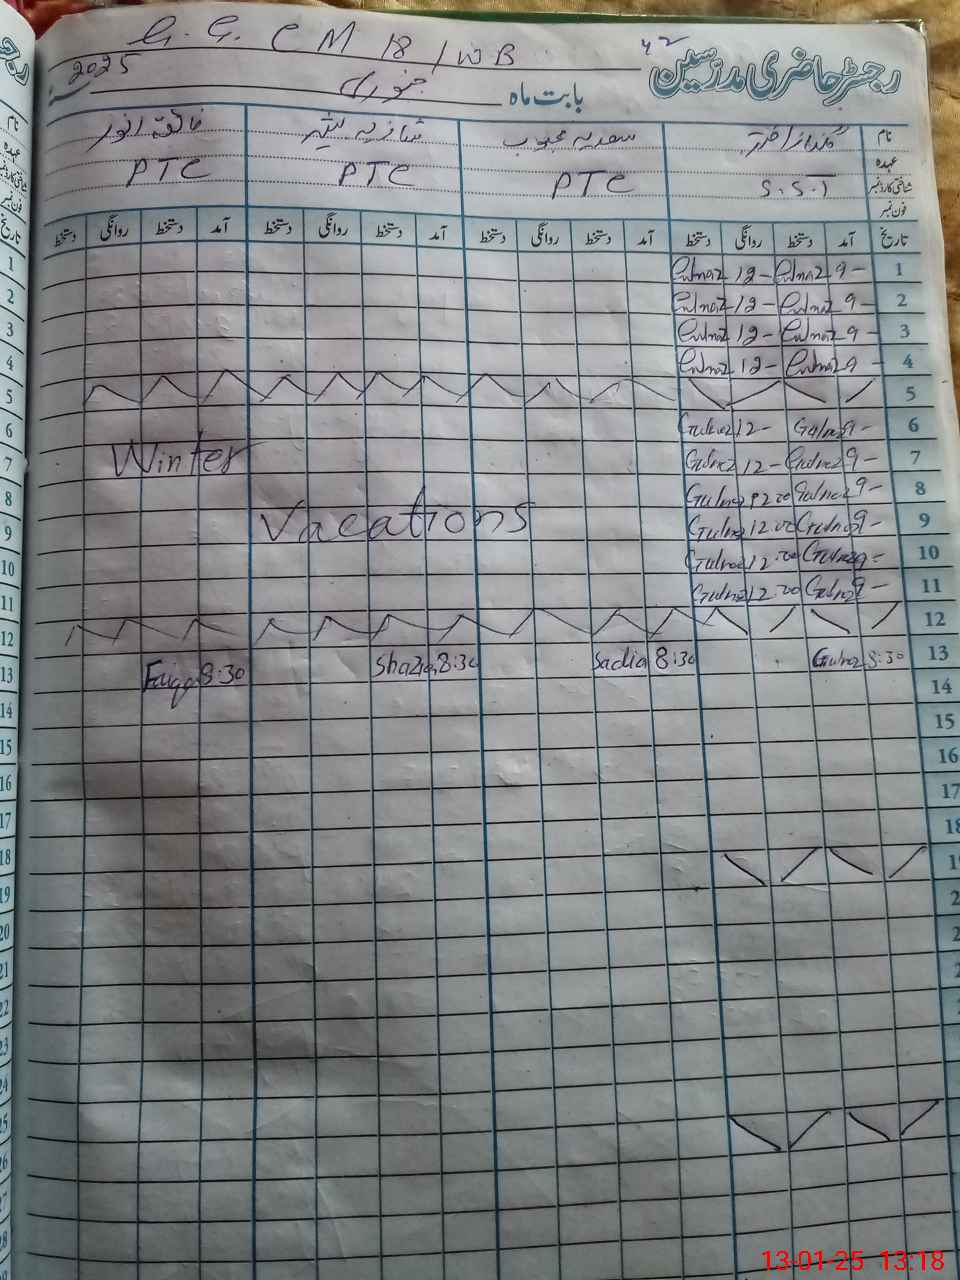 G. G. C M 18 / W B
رجسٹر حاضری مدرسین
بابت ماہ جنوری 2025
نام گلناز اختر سعدیہ محبوب شازیہ بشیر فائقہ انور
عہدہ
شناختی کارڈ نمبر S.S.T PTC PTC PTC
فون نمبر
تاریخ آمد دستخط روانگی دستخط آمد دستخط روانگی دستخط آمد دستخط روانگی دستخط آمد دستخط روانگی دستخط
1 9- Gulnaz 12- Gulnaz
2 9- Gulnaz 12- Gulnaz
3 9- Gulnaz 12- Gulnaz
4 9- Gulnaz 12- Gulnaz
5
6 9- Gulnaz 12- Gulnaz
7 9- Gulnaz 12- Gulnaz
Winter
8 9- Gulnaz 12.00 Gulnaz
Vacations
9 9- Gulnaz 12.00 Gulnaz
10 9- Gulnaz 12.00 Gulnaz
11 9- Gulnaz 12.00 Gulnaz
12
13 8:30 Gulnaz 8:30 Sadia 8:30 Shazia 8:30 Faiqa
14
15
16
17
18
19
20
21
22
23
24
25
26
27
28
13-01-25 13:18